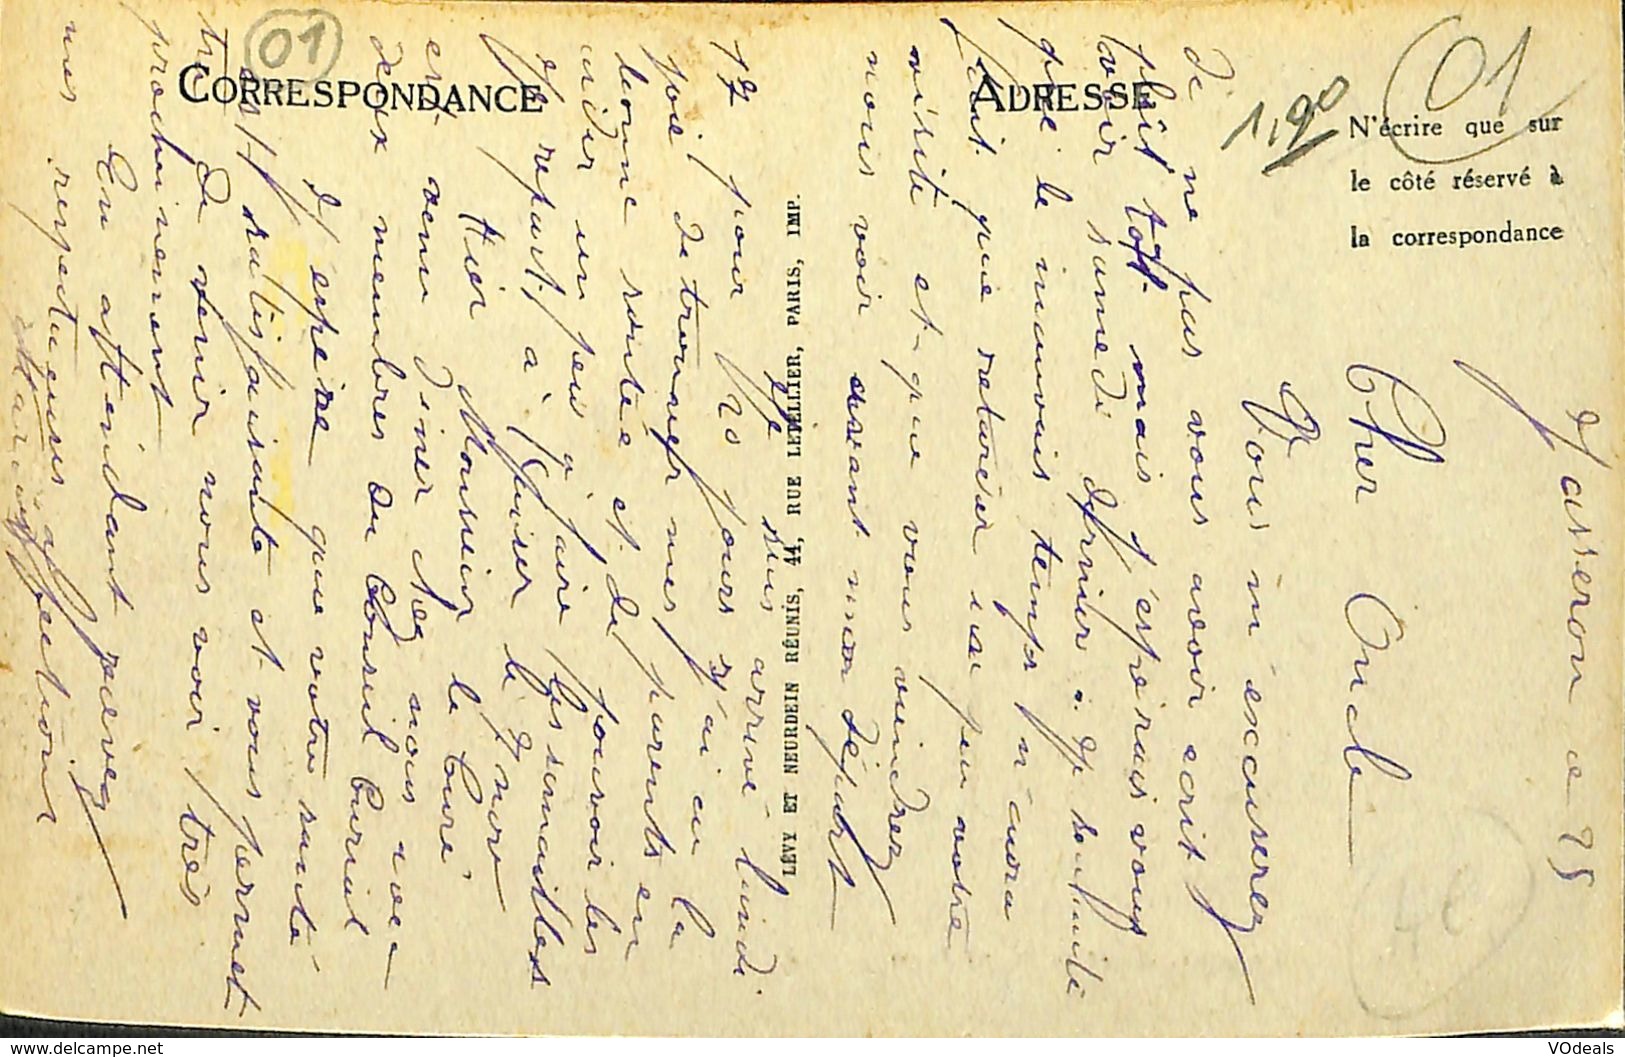 CORRESPONDANCE
ADRESSE
N'écrire que sur
le côté réservé à
la correspondance
LÉVY ET NEURDEIN RÉUNIS, 44, RUE LETELLIER, PARIS, IMP.
01
01
1,90
40
Jasseron ce 25
Cher Oncle
Vous m'excuserez
de ne pas vous avoir ecrit
plût tot mais j'espérais vous
voir samedi dernier. Je souhaite
que le mauvais temps n'aura
fait que retarder un peu votre
visite et que vous viendrez
nous voir avant mon départ
Je suis arrivé lundi
17 pour 20 jours j'ai eu la
joie de trouver mes parents en
bonne santé et de pouvoir les
aider un peu à faire les semailles
Je repart à
Hier Monsieur le Curé
est venu diner chez nous avec
deux membres du Conseil Curial
J'espère que votre santé
est satisfaisante et vous permet
tra de venir nous voir très
prochainement
En attendant recevez
mes respectueuses affections